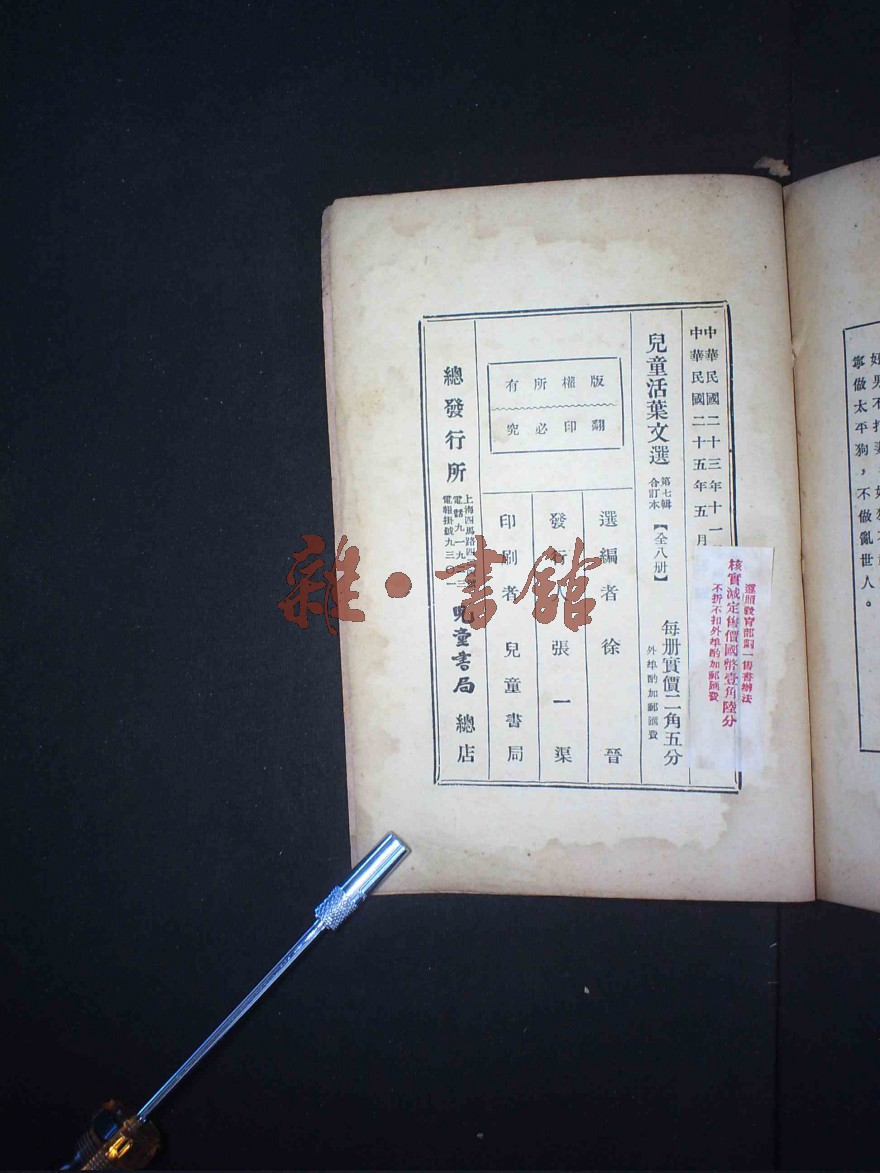 好男不打妻，好狗不
寧做太平狗，不做亂世人。
中華民國二十三年十一
中華民國二十五年五月
遵照教育部劃一售書辦法
核實減定售價國幣壹角陸分
不折不扣外埠酌加郵匯費
兒童活葉文選 第七輯 合訂本 【全八册】
每册實價二角五分
外埠酌加郵匯費
版權所有
翻印必究
選編者 徐晉
發行人 張一渠
印刷者 兒童書局
總發行所
上海四馬路四
電話九一九
電報掛號九三〇一一
兒童書局 總店
雜·書館